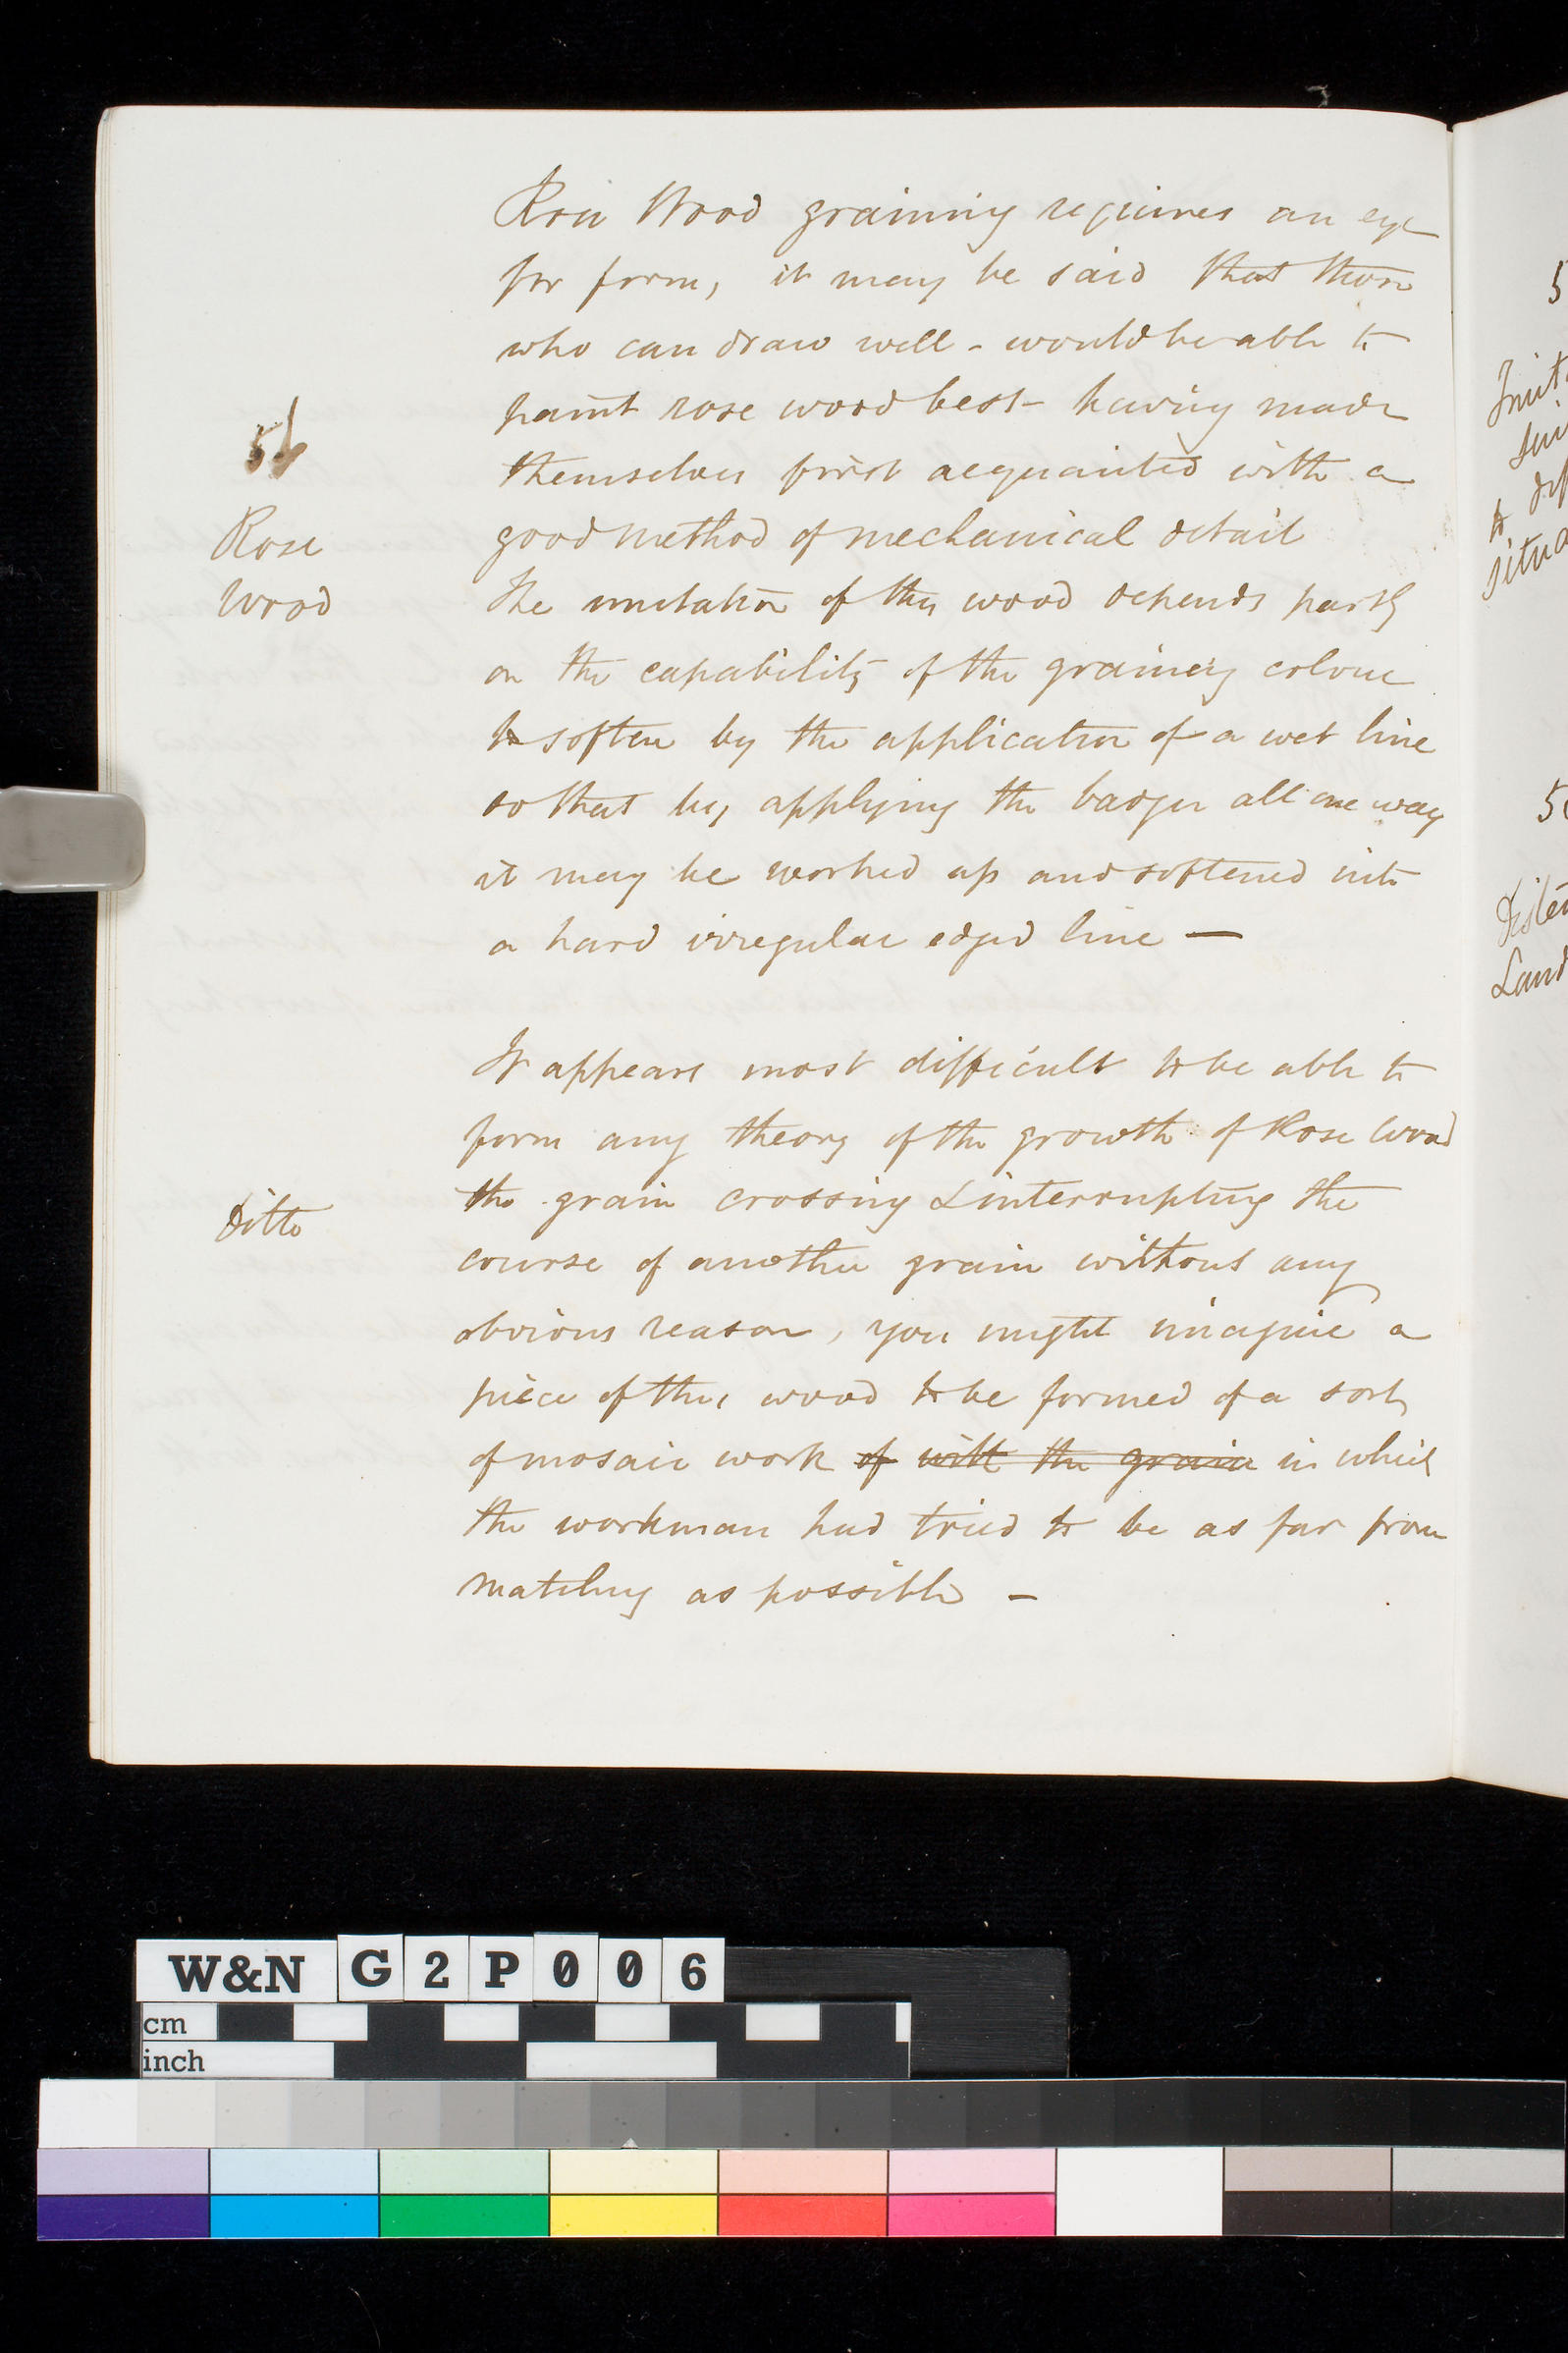 Rose Wood graining requires an eye
for form, it may be said that those
who can draw well - would be able to
paint rose wood best - having made
56
themselves first acquainted with a
Rose
good method of mechanical detail
Wood
The imitation of this wood depends partly
on the capability of the graining colour
to soften by the application of a wet line
so that by applying the badger all one way
it may be worked up and softened into
a hard irregular edged line —
It appears most difficult to be able to
form any theory of the growth of Rose Wood
the grain crossing & interrupting the
Ditto
course of another grain without any
obvious reason, you might imagine a
piece of this wood to be formed of a sort
of mosaic work of with the grain in which
the workman had tried to be as far from
matching as possible -
5
to
5
Land
W&N G2P006
cm
inch